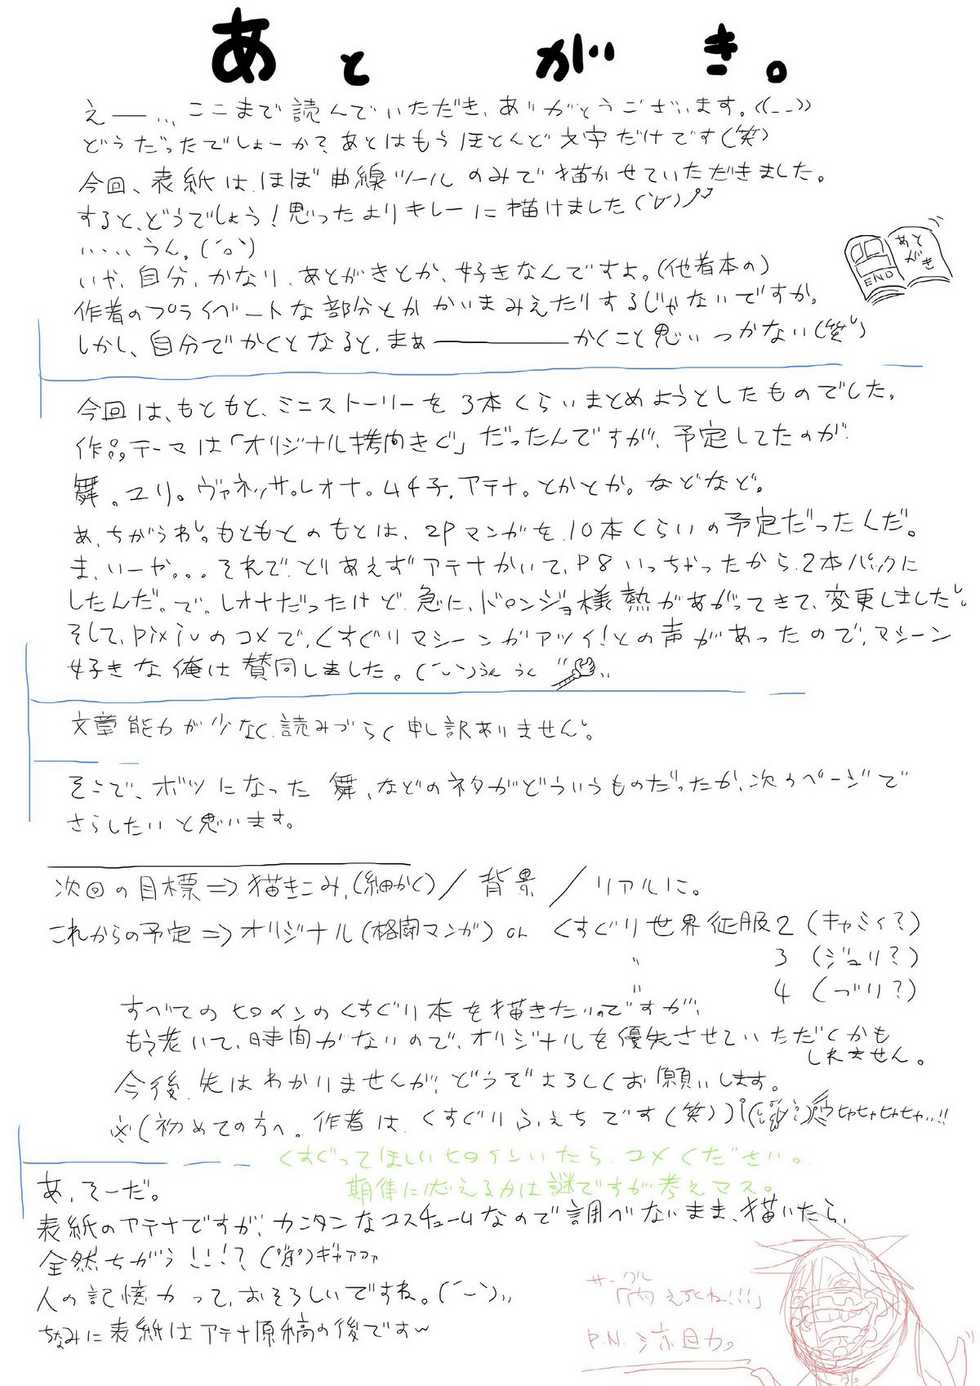 あとがき。
えー… ここまで読んでいただき、ありがとうございます。((_ _))
どうだったでしょーか?あとはもうほとんど文字だけです(笑)
今回、表紙は、ほぼ曲線ツールのみで描かせていただきました。
すると、どうでしょう!思ったよりキレーに描けました
…うん。
いや、自分、かなり、あとがきとか、好きなんですよ。(他者本の)
作者のプライベートな部分とかかいまみえたりするじゃないですか。
しかし、自分でかくとなると、まぁーーーかくこと思いつかない(笑)
あとがき
END
今回は、もともと、ミニストーリーを3本くらいまとめようとしたものでした。
作品テーマは「オリジナル拷問きぐ」だったんですが、予定してたのが、
舞。ユリ。ヴァネッサ。レオナ。ムチ子。アテナ。とかとか。などなど。
あ、ちがうわ。もともとのもとは、2Pマンガを、10本くらいの予定だったんだ。
ま、いーや。。。それで、とりあえずアテナかいて、P8いっちゃったから、2本パックに
したんだ。で、レオナだったけど、急に、ドロンジョ様熱があがってきて、変更しました。
そして、pixivのコメで、くすぐりマシーンがアツイ!との声があったので、マシーン
好きな俺は賛同しました。(´ー`)うん うん
文章能力が少なく、読みづらく申し訳ありません。
そこで、ボツになった 舞、などのネタがどういうものだったか、次のページで
さらしたいと思います。
次回の目標⇒描きこみ,(細かく)/背景/リアルに。
これからの予定⇒オリジナル(格闘マンガ) or くすぐり世界征服2(キャミィ?)
〃 3(ジュリ?)
〃 4(づり?)
すべてのヒロインのくすぐり本を描きたいのですが、
もう老いて、時間がないので、オリジナルを優先させていただくかも
しれません。
今後、先はわかりませんが、どうぞよろしくお願いします。
※(初めての方へ。作者は、くすぐりふぇちです(笑))
くすぐってほしいヒロインいたら、コメください。
期待に応えるかは謎ですが考えマス。
あ、そーだ。
表紙のアテナですが、カンタンなコスチュームなので調べないまま、描いたら、
全然ちがう!!!?(゚Д゚)ギャァァァ
人の記憶力って、おそろしいですね。(´ー`)
ちなみに表紙はアテナ原稿の後です〜
サークル
P.N.